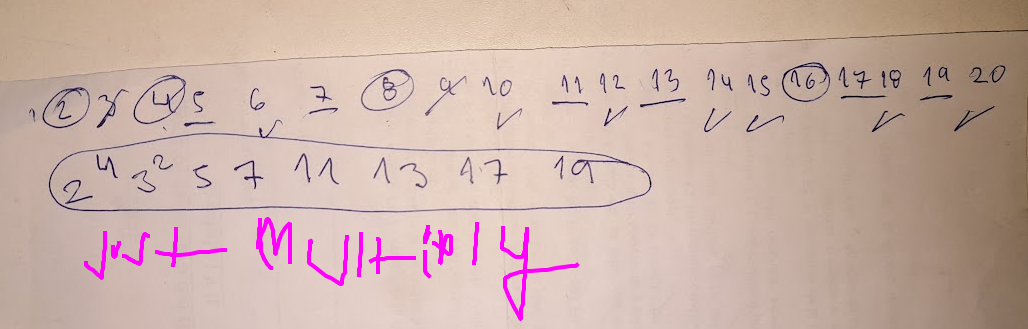 1 2 3 4 5 6 7 8 9 10 11 12 13 14 15 16 17 18 19 20
2⁴ 3² 5 7 11 13 17 19
Just Multiply